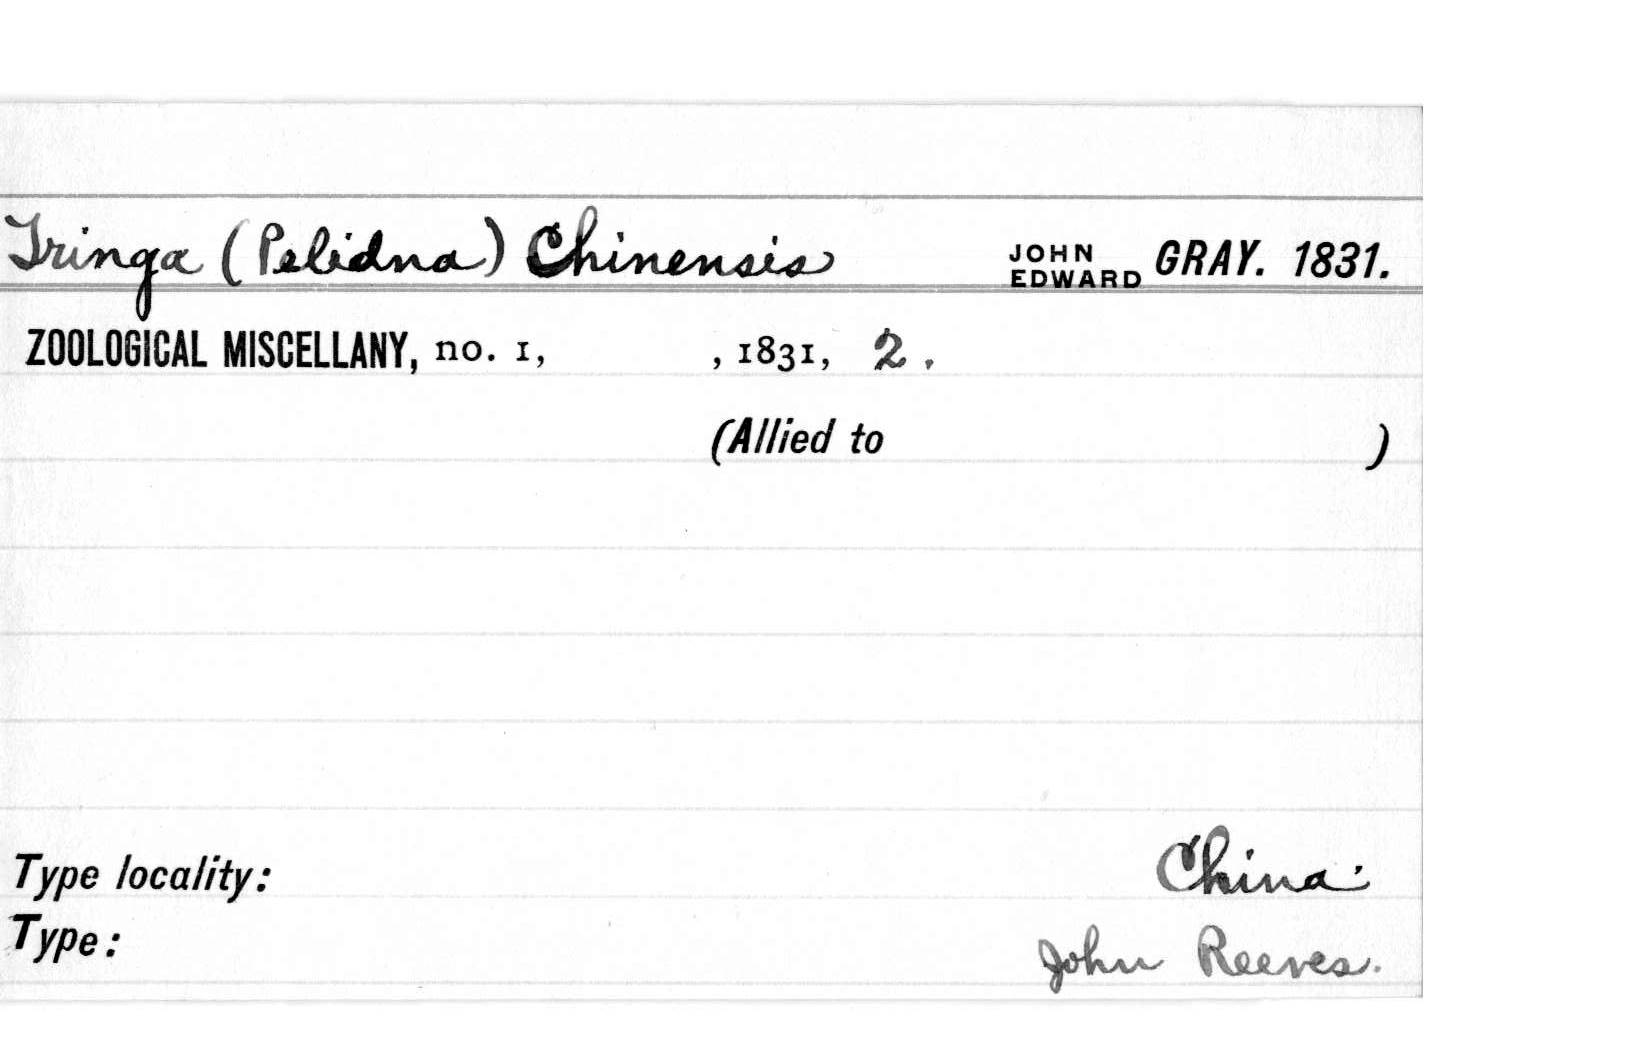 Tringa (Pelidna) Chinensis JOHN EDWARD GRAY. 1831.
ZOOLOGICAL MISCELLANY, no. 1, , 1831, 2.
(Allied to )
Type locality: China.
Type: John Reeves.